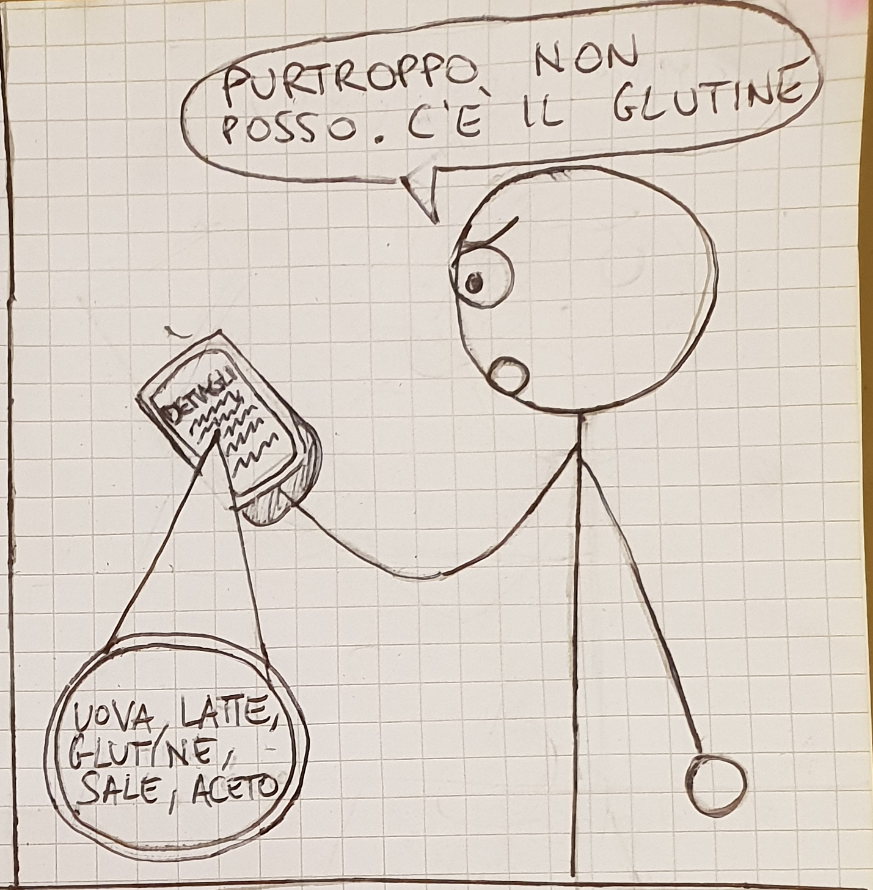 PURTROPPO NON
POSSO. C'È IL GLUTINE
DETTAGLI
UOVA, LATTE,
GLUTINE,
SALE, ACETO